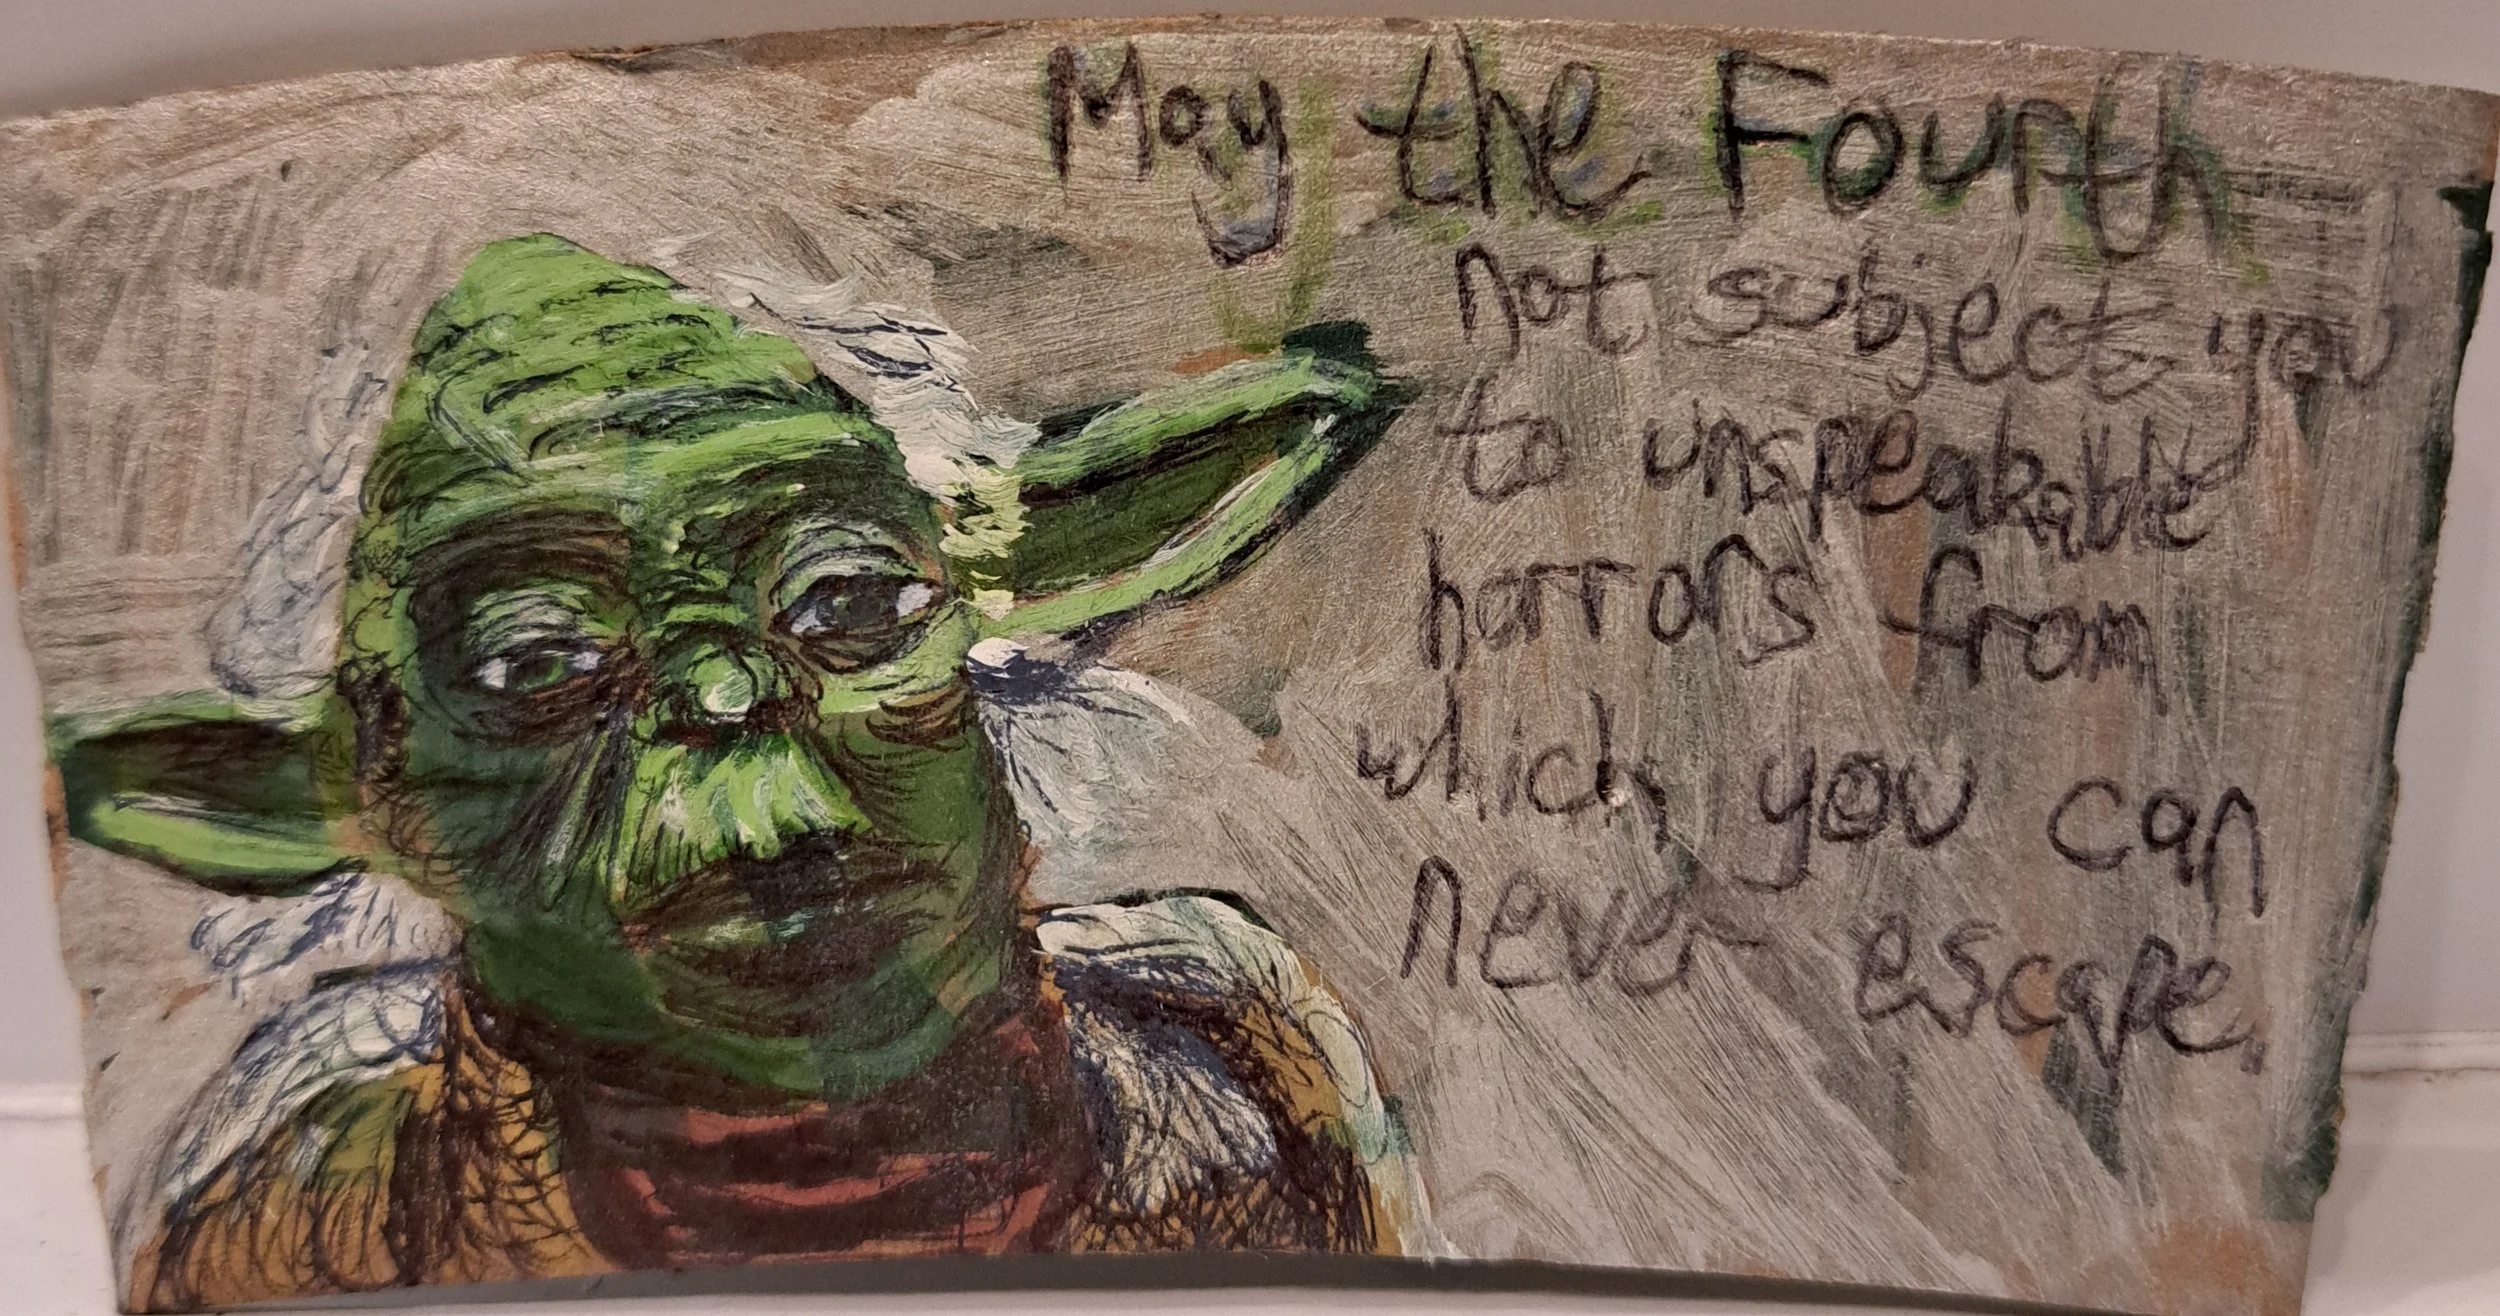 May the Fourth
not subject you
to unspeakable
horrors from
which you can
never escape.